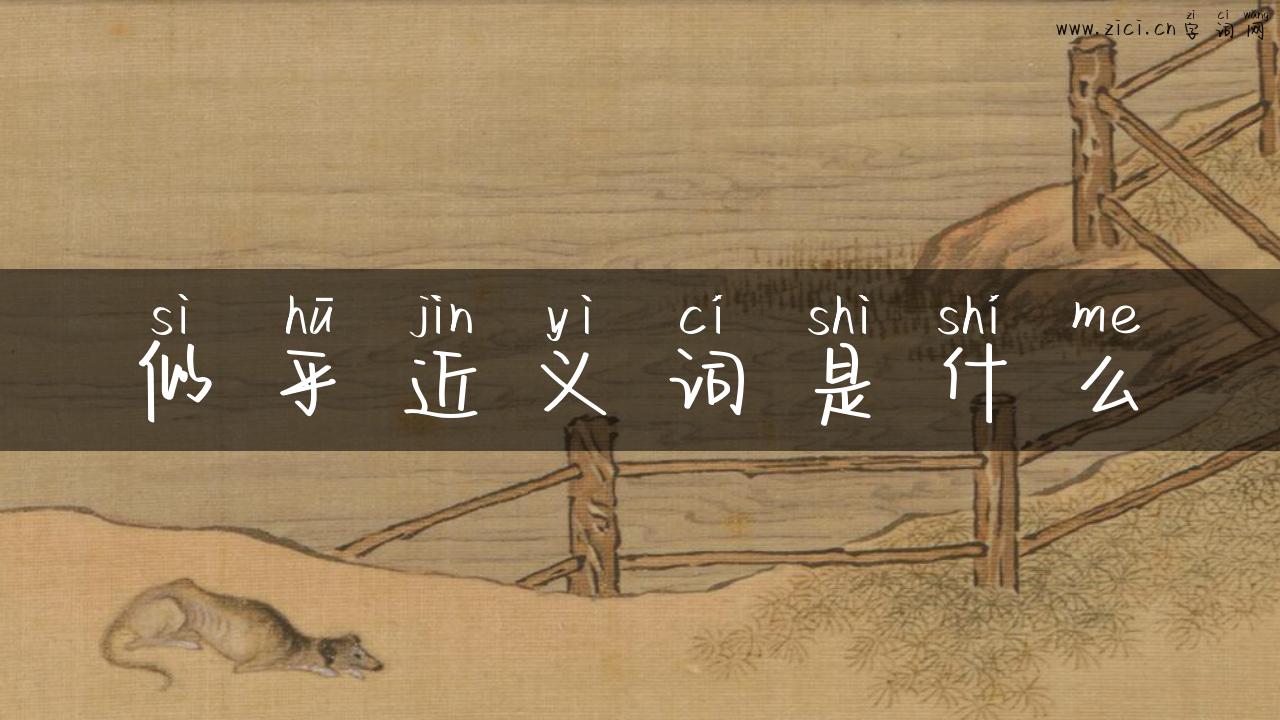 zi ci wang
www.zici.cn 字词网
sì hū jìn yì cí shì shí me
似乎近义词是什么